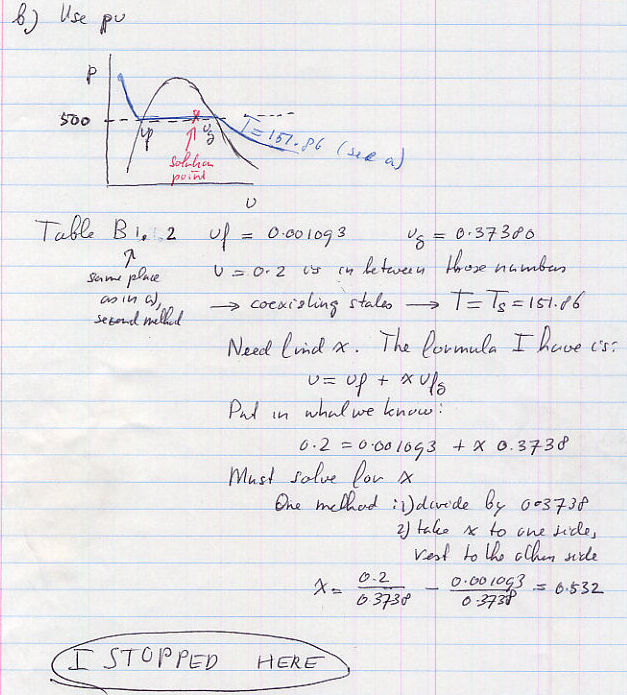 b) Use pv
p
500
vf
vg
T=151.86 (see a)
solution
point
v
Table B 1.1.2 vf = 0.001093 vg = 0.37380
same place
as in a),
second method
v = 0.2 is in between those numbers
→ coexisting states → T = Ts = 151.86
Need find x. The formula I have is:
v = vf + x vfg
Put in what we know:
0.2 = 0.001093 + x 0.3738
Must solve for x
One method : 1) divide by 0.3738
2) take x to one side,
rest to the other side
x = 0.2/0.3738 - 0.001093/0.3738 = 0.532
I STOPPED HERE